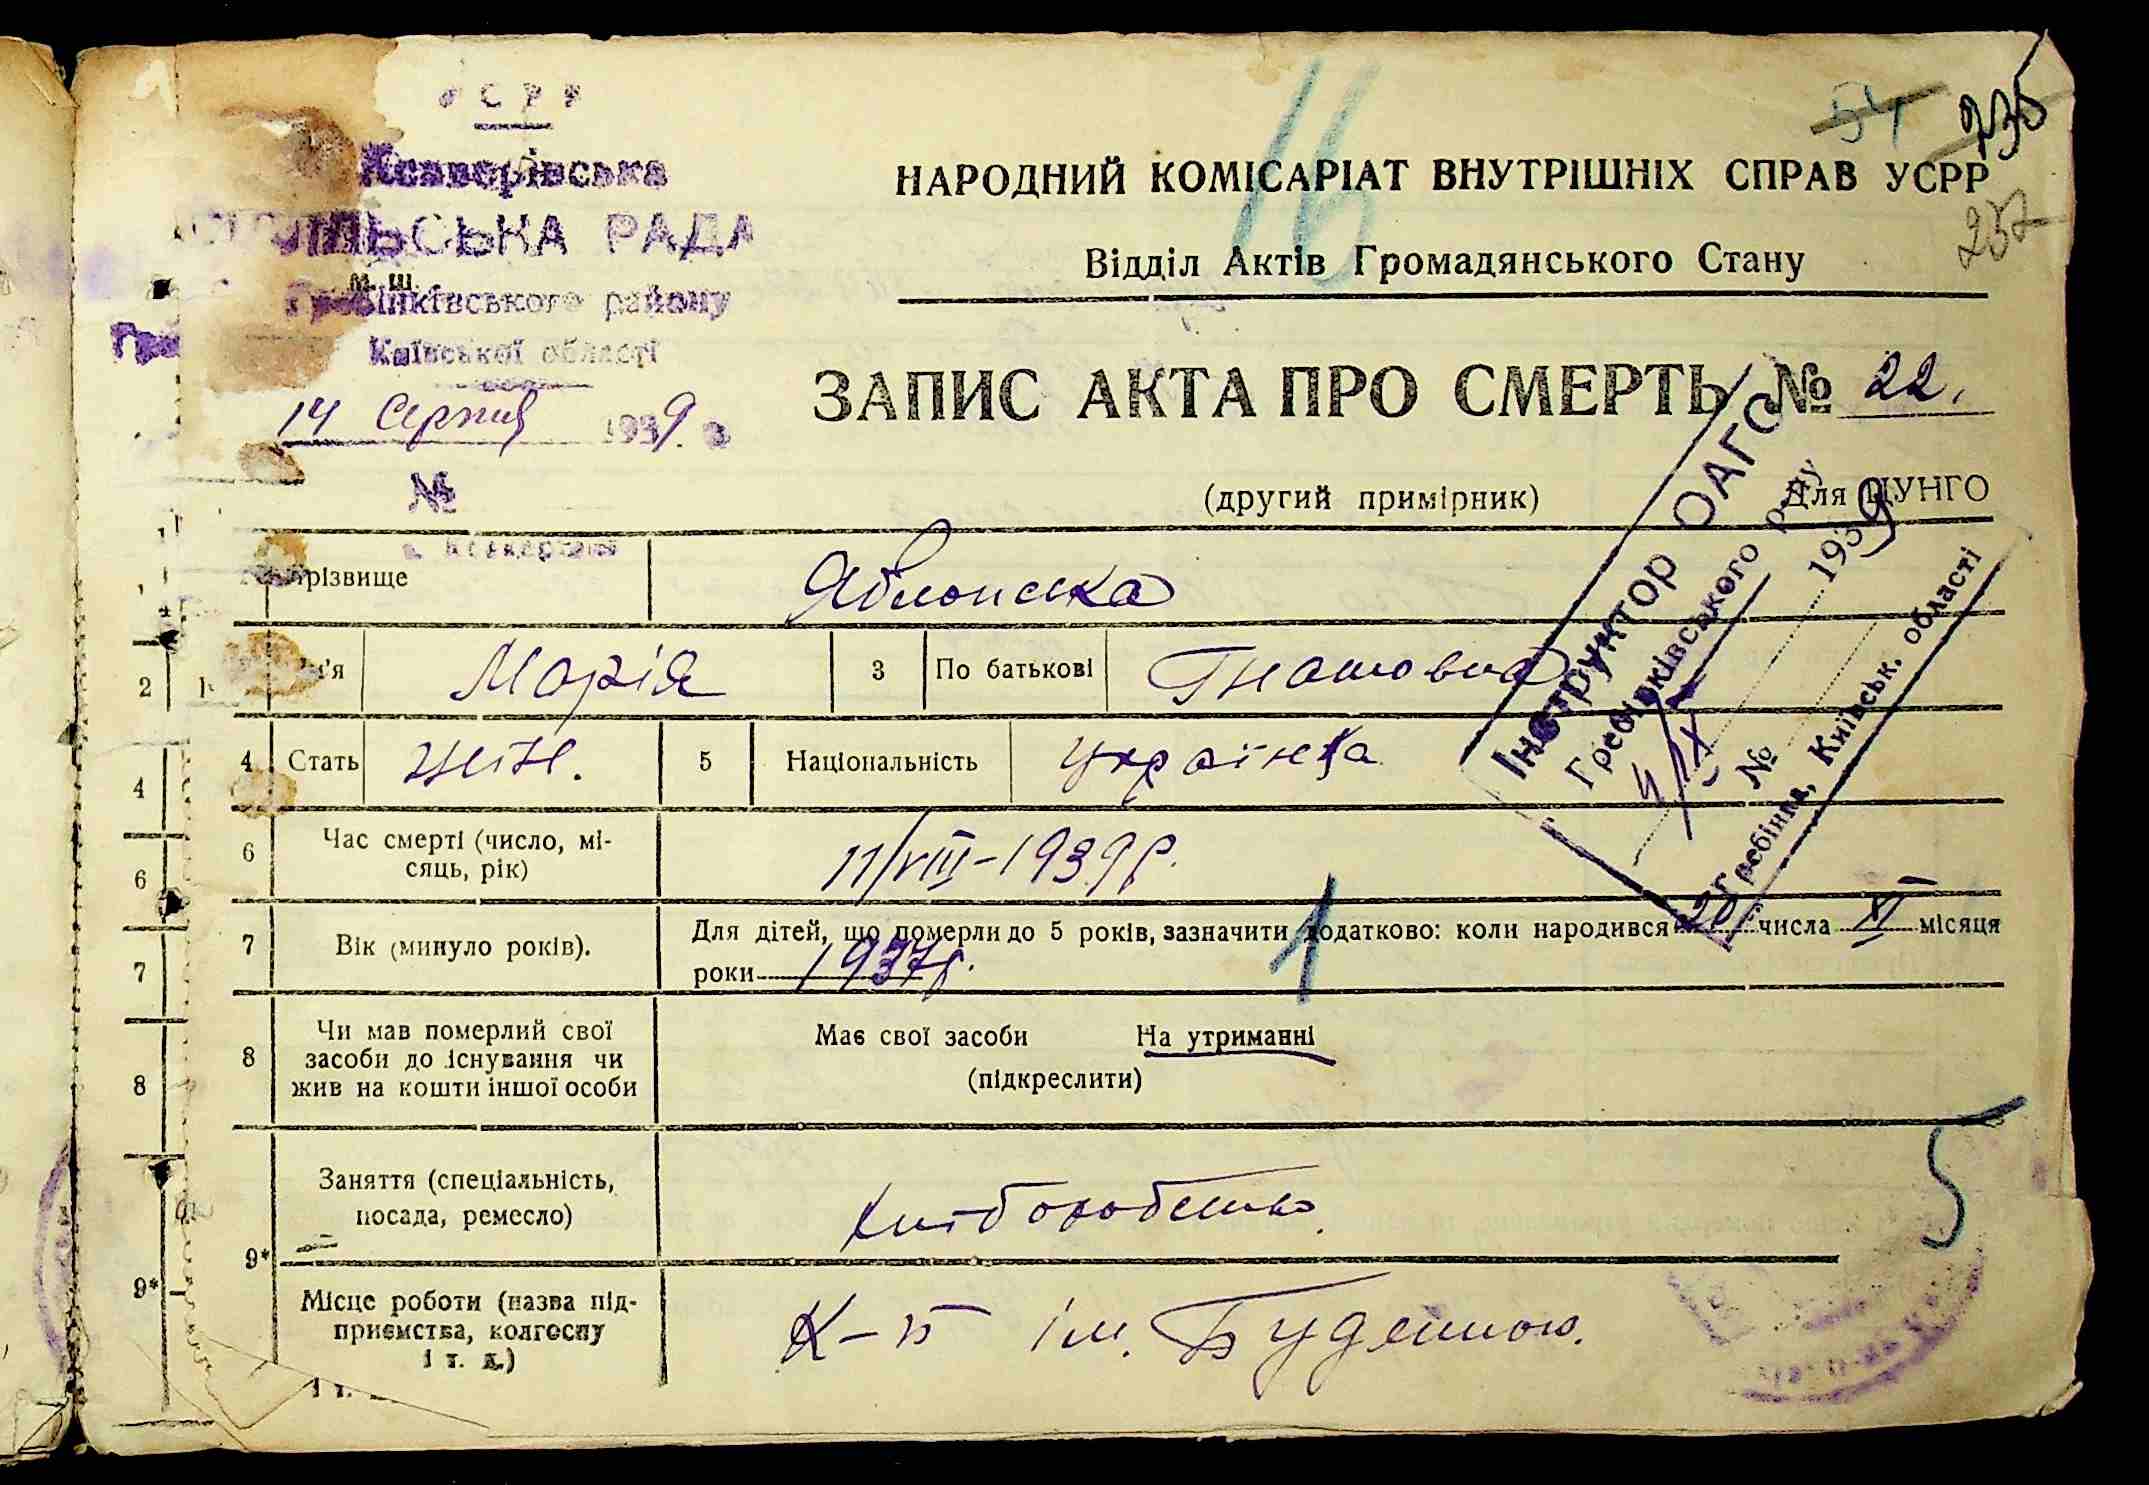 УСРР
Ксаверівська
СІЛЬСЬКА РАДА
м. ш.
Гребінківського району
Київської області
14 Серпня 1939 р.
№
с. Ксаверівка
16
54
235
237
НАРОДНИЙ КОМІСАРІАТ ВНУТРІШНІХ СПРАВ УСРР
Відділ Актів Громадянського Стану
ЗАПИС АКТА ПРО СМЕРТЬ № 22.
(другий примірник) Для ЦУНГО
Інструктор ОАГС
Гребінківського р-ну
4/IX 1939
№
Гребінка, Київськ. області
Прізвище Яблонська
Ім'я Марія 3 По батькові Гнатовна
4 Стать жін. 5 Національність українка
6 Час смерті (число, мі-
сяць, рік) 11/VIII-1939р.
7 Вік (минуло років). Для дітей, що померли до 5 років, зазначити додатково: коли народився 20 числа XI місяця
роки 1937р.
1
8 Чи мав померлий свої
засоби до існування чи
жив на кошти іншої особи
Має свої засоби На утриманні
(підкреслити)
5
9* Заняття (спеціальність,
посада, ремесло) хліборобство.
Місце роботи (назва під-
приємства, колгоспу
і т. д.) К-п ім. Будешного.
2
4
6
7
8
9*